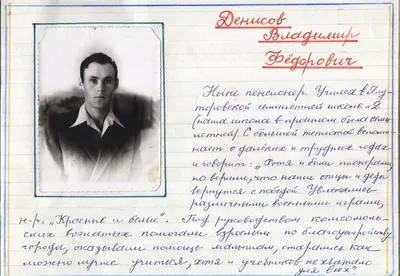 Денисов
Владимир
Фёдорович
Ныне пенсионер. Учился в Ялу-
торовской семилетней школе №2
(наша школа в прошлом была семи-
летней). С большой теплотой вспоми-
нает о далёких и трудных годах
и говорит: „Хотя и были пионерами,
но верили, что наши отцы и деды
вернутся с победой. Увлекались
различными военными играми,
н-р, "Красные и белые". Под руководством комсомоль-
ских вожатых помогали взрослым по благоустройству
города, оказывали помощь малышам, старались как
можно лучше учиться, хотя и учебников не хватало
для всех".